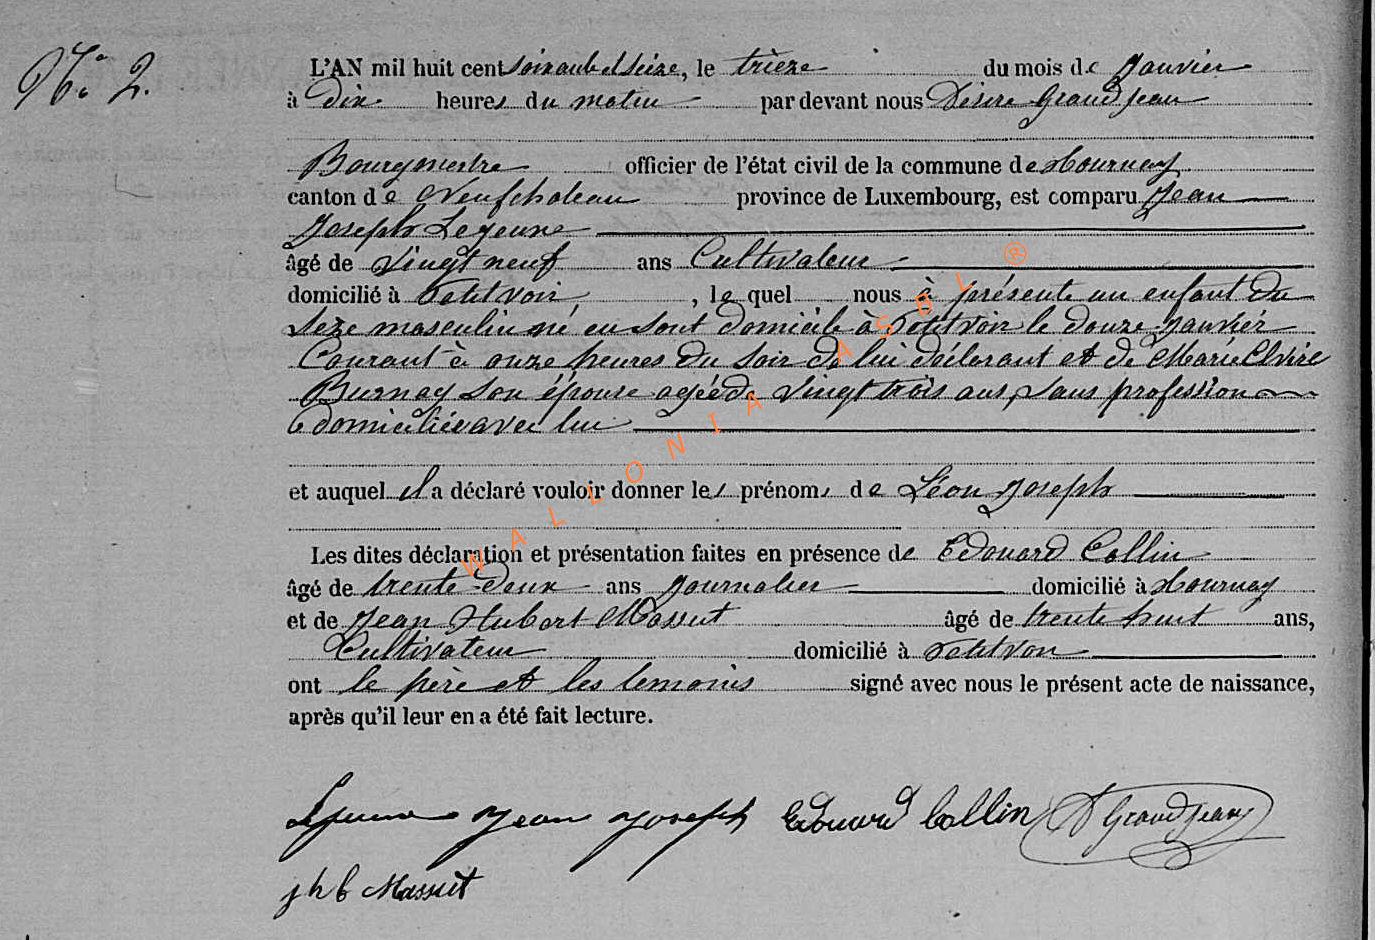 No. 2.
L'AN mil huit cent soixante et seize, le trieze du mois de Janvier
à dix heures du matin par devant nous Désiré Grandjean
Bourgmestre officier de l'état civil de la commune de Tournay
canton de Neufchateau province de Luxembourg, est comparu Jean
Joseph Lejeune
âgé de vingt neuf ans Cultivateur
domicilié à Petitvoir, le quel nous à présenté un enfant du
sexe masculin né en sont domicile à Petitvoir le douze janvier
Courant à onze heures du soir de lui déclarant et de Marie
Burnay son épouse agée de vingt trois ans, sans profession
domiciliée avec lui
et auquel il a déclaré vouloir donner les prénoms de Léon Joseph
Les dites déclaration et présentation faites en présence de Edouard Collin
âgé de trente-deux ans Journalier domicilié à Tournay
et de Jean Hubert Massut âgé de trente huit ans,
Cultivateur domicilié à Petitvoir
ont le père et les temoins signé avec nous le présent acte de naissance,
après qu'il leur en a été fait lecture.
Lejeune Jean Joseph Edouard Collin D Grandjean
j h b Massut
WALLONIA ASBL ®